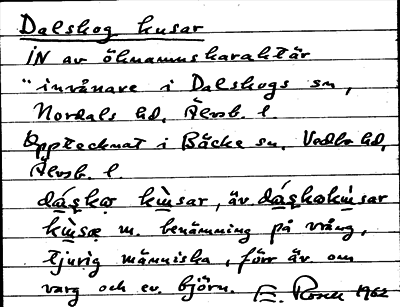 Dalskog kusar
IN av öknamnskaraktär
"invånare i Dalskogs sn,
Nordals hd, Älvsb. l.
Upptecknat i Bäcke sn. Vedbo hd,
Älvsb. l.
sar, äv.
m. benämning på vrång,
tjurig människa, förr äv. om
varg och ev. björn. E. Rosell 1962